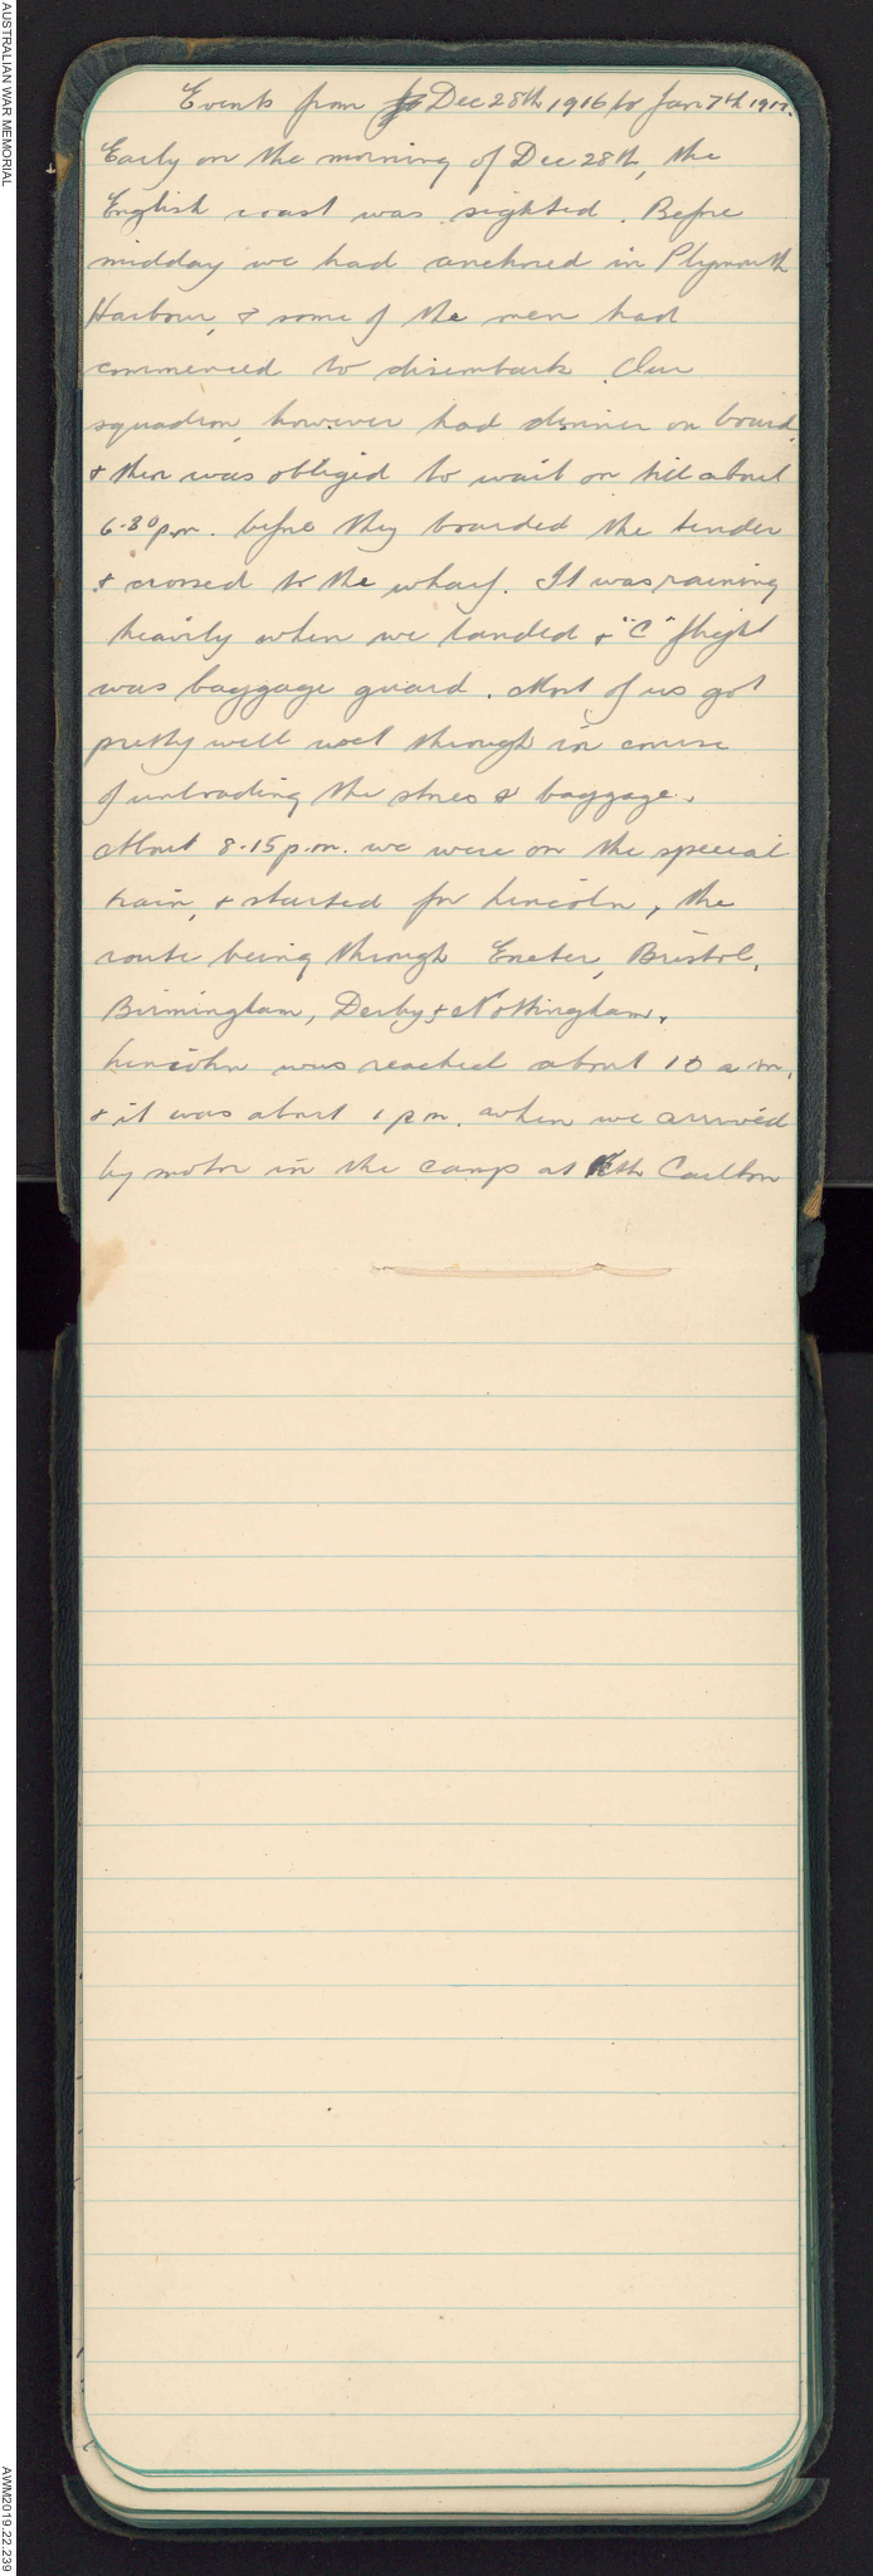 AUSTRALIAN WAR MEMORIAL
Events from Dec 28th 1916 to Jan 7th 1917.
Early on the morning of Dec 28th, the
English coast was sighted. Before
midday we had anchored in Plymouth
Harbour, & some of the men had
commenced to disembark. Our
squadron, however had dinner on board,
& then was obliged to wait on till about
6.30 p.m. before they boarded the tender
& crossed to the wharf. It was raining
heavily when we landed & "C" flight
was baggage guard. Most of us got
pretty well wet through in course
of unloading the stores & baggage.
About 8.15 p.m. we were on the special
train, & started for Lincoln, the
route being through Exeter, Bristol,
Birmingham, Derby & Nottingham.
Lincoln was reached about 10 a.m.
& it was about 1 p.m. when we arrived
by motor in the camp at Sth Carlton
AWM2019.22.239